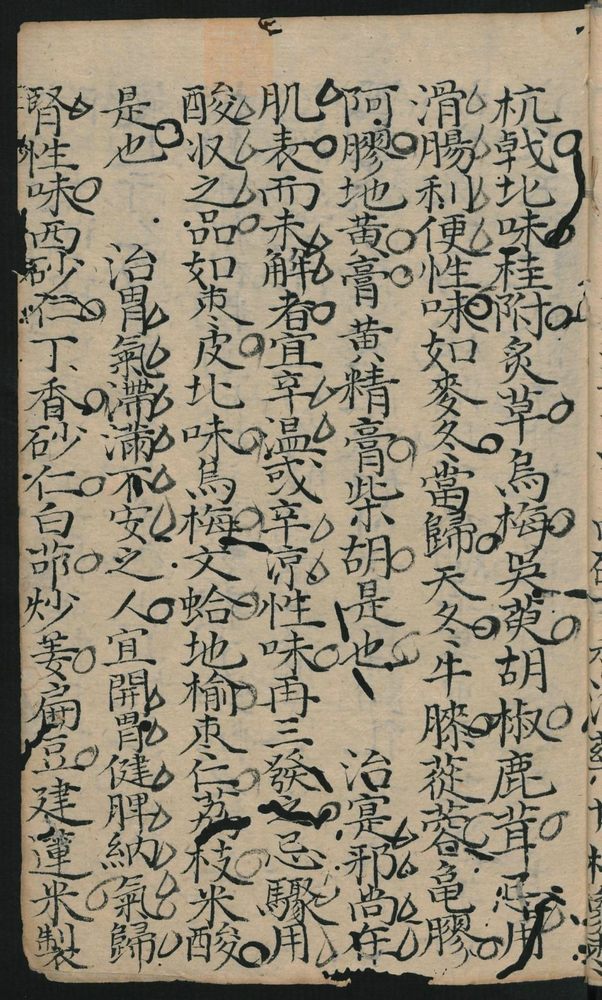 杭戟北味桂附炙草烏梅吳萸胡椒鹿茸忌用
滑腸利便性味如麥冬當歸天冬牛膝蓯蓉亀膠
阿膠地黄膏黄精膏柴胡是也 治寔邪尚在
肌表而未解者宜辛温或辛凉性味再三發之忌驟用
酸収之品如枣皮北味烏梅文蛤地榆枣仁荔枝米酸
是也 治胃氣滯滿不安之人宜開胃健脾納氣歸
腎性味西砂仁丁香砂仁白朮炒姜扁豆建蓮米製